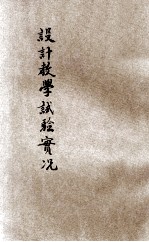 設計教學試驗實况